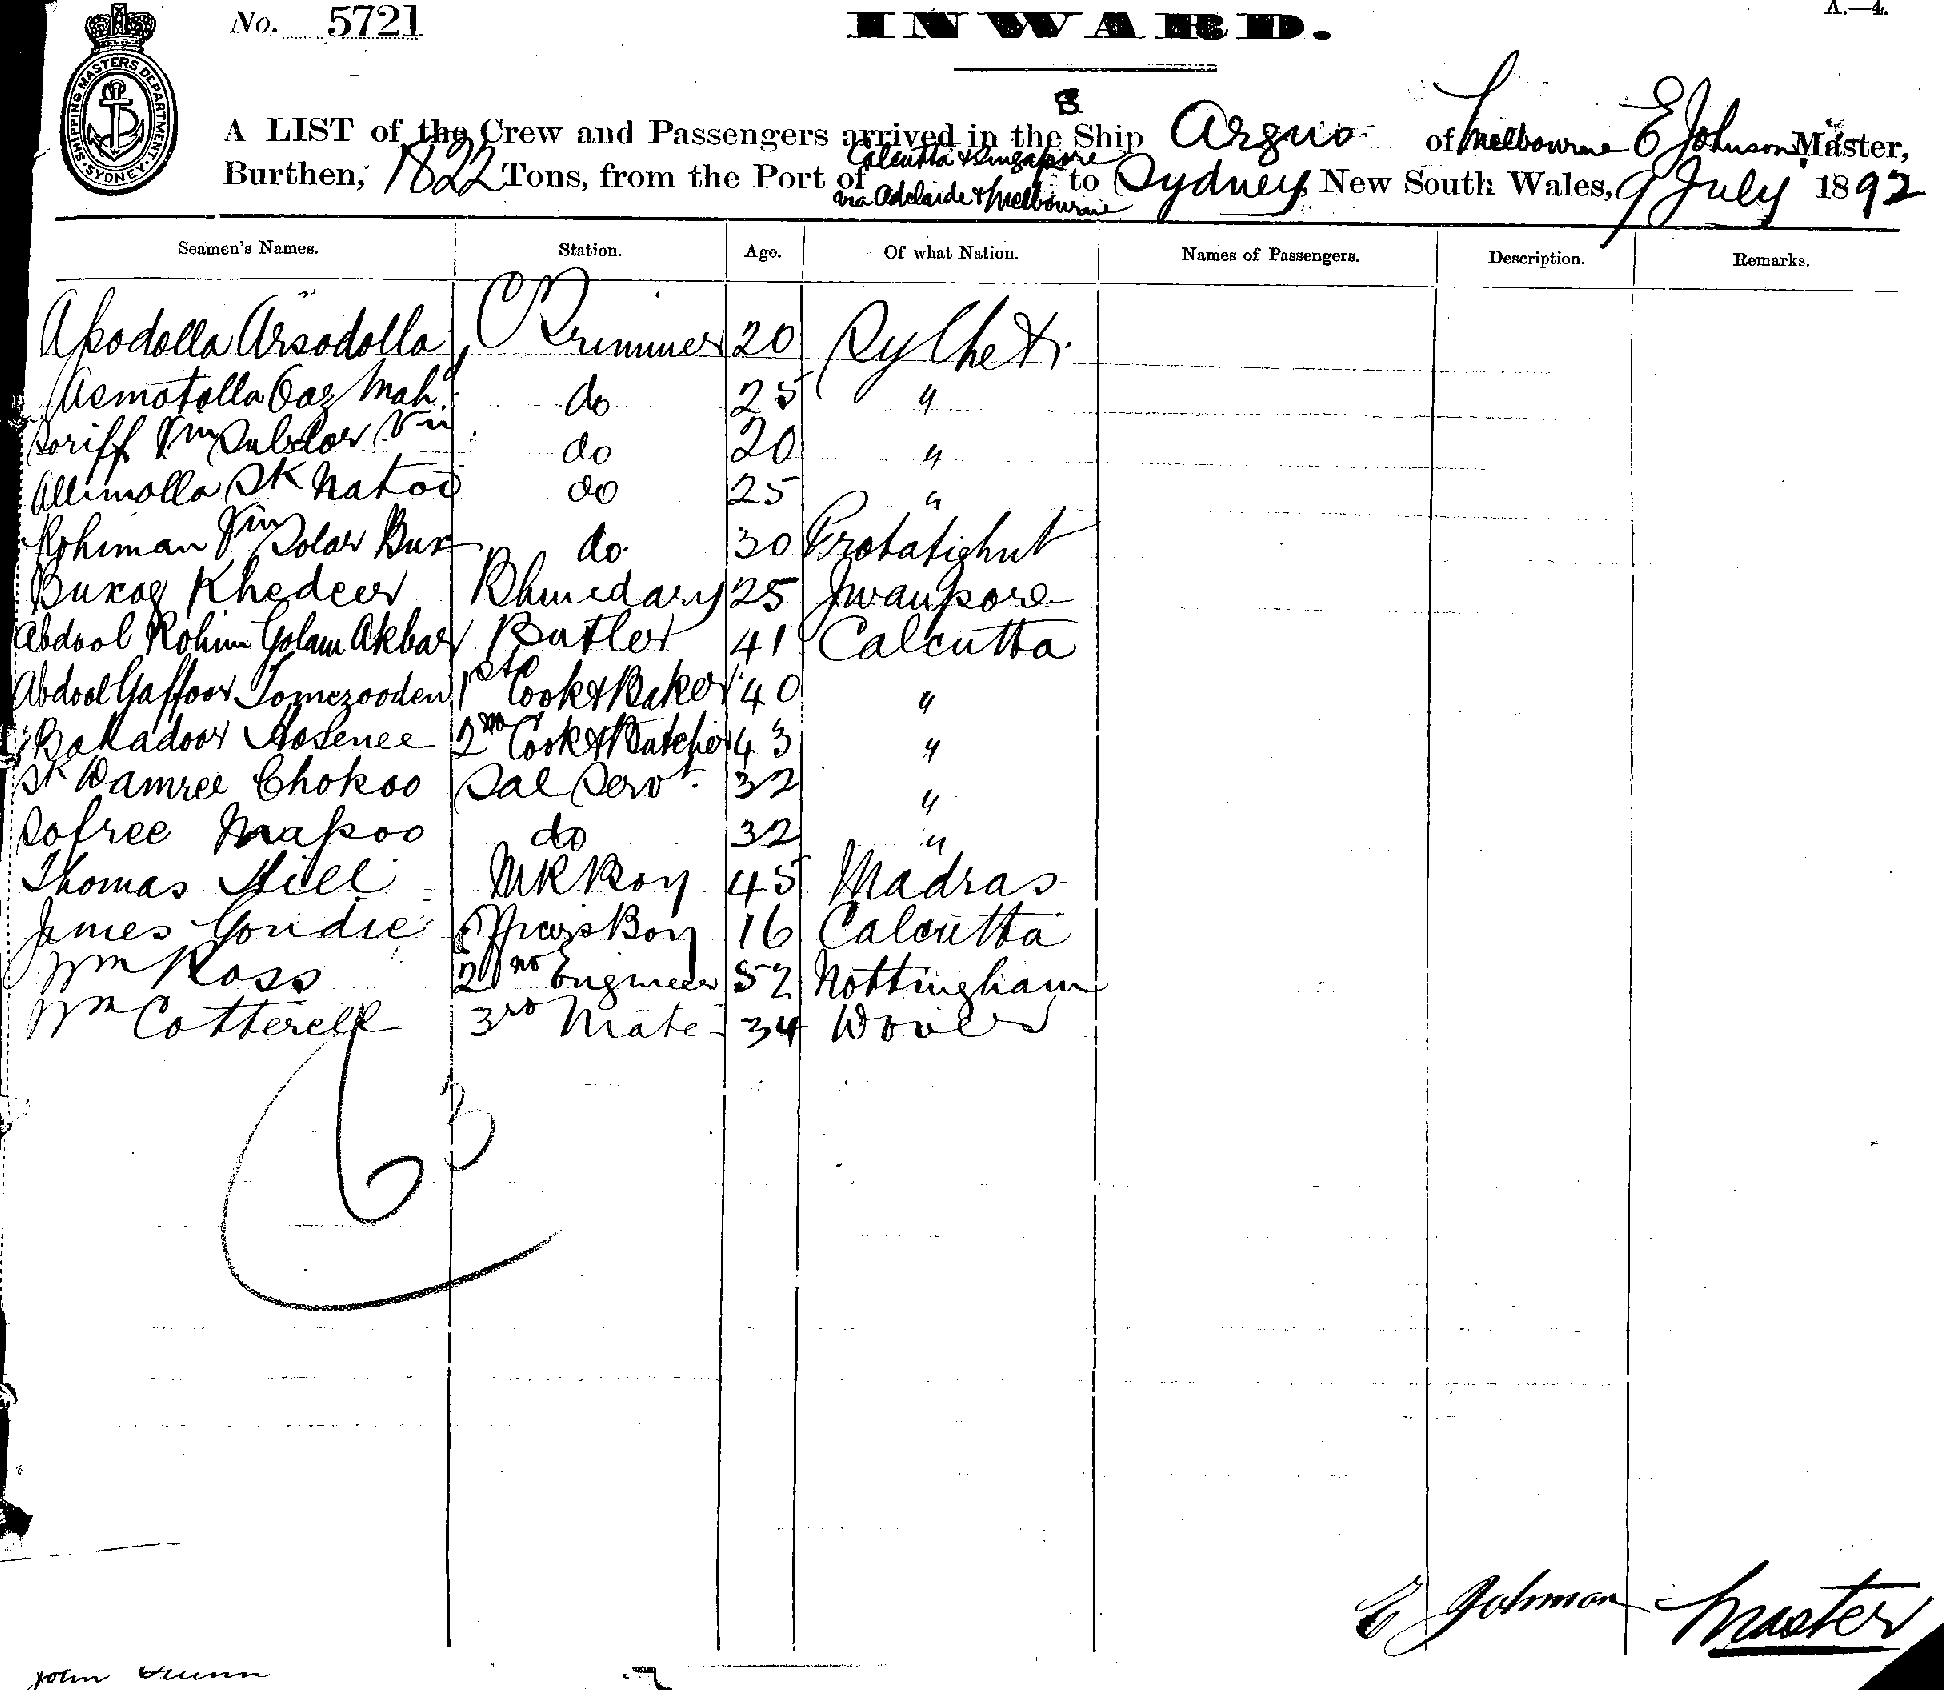 No. 5721
INWARD.
A.—4.
SHIPPING MASTERS DEPARTMENT SYDNEY
S
A LIST of the Crew and Passengers arrived in the Ship Argus of Melbourne E Johnson Master,
Calcutta & Singapore
Burthen, 1822 Tons, from the Port of to Sydney, New South Wales, 9 July 1892
via Adelaide & Melbourne
Seamen's Names. Station. Age. Of what Nation. Names of Passengers. Description. Remarks.
Apodolla Arsodolla Trimmer 20 Sylhet
Asmotolla Gaz Mah. do 25 "
Soriff do 20 "
Allimolla Sk Natoo do 25 "
Rohiman Bux do 30 Protatighut
Buxog Khedeer 25 Jwanpore
Abdool Rohim Golam Akbar Butler 41 Calcutta
Abdool Gaffoor Tomezooden 1st Cook & Baker 40 "
Bahadoor Hosenee 2nd Cook & Butcher 43 "
Sk Damree Chokoo Sal Servt. 32 "
Sofree Mapoo do 32 "
Thomas Hill Boy 45 Madras
James Goudie Boy 16 Calcutta
Wm Ross 2nd Engineer 52 Nottingham
Wm Cotterell 3rd Mate 34
63
E Johnson Master
John